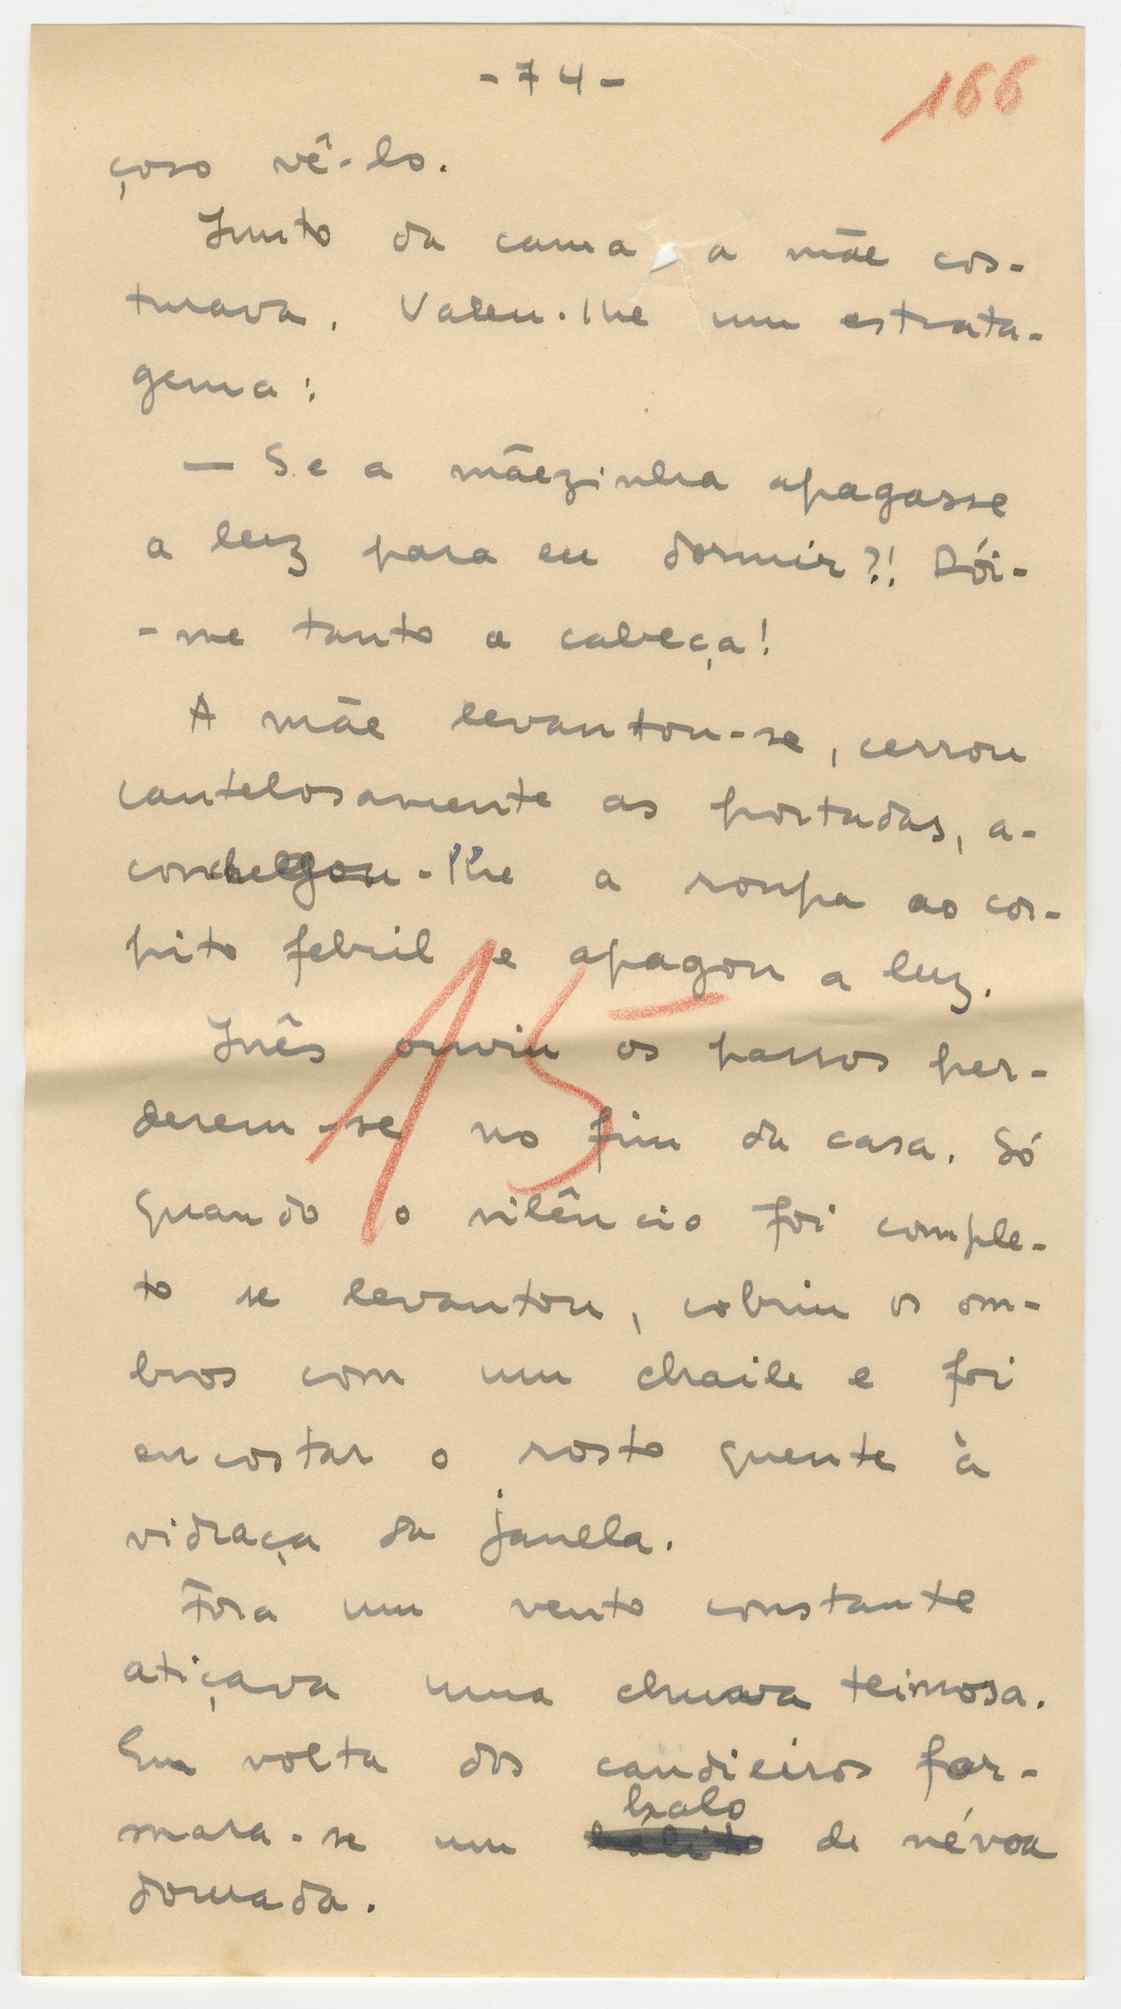 -74-
166
çoso vê-lo.
Junto da cama, a mãe cos-
turava. Valeu-lhe um estrata-
gema:
— Se a mãezinha apagasse
a luz para eu dormir?! Dói-
-me tanto a cabeça!
A mãe levantou-se, cerrou
cautelosamente as portadas, a-
conchegou-lhe a roupa ao cor-
pito febril e apagou a luz.
15
Inês ouviu os passos per-
derem-se no fim da casa. Só
quando o silêncio foi comple-
to se levantou, cobriu os om-
bros com um chaile e foi
encostar o rosto quente à
vidraça da janela.
Fora um vento constante
atiçava uma chuva teimosa.
Em volta dos candieiros for-
halo
mara-se um de névoa
dourada.